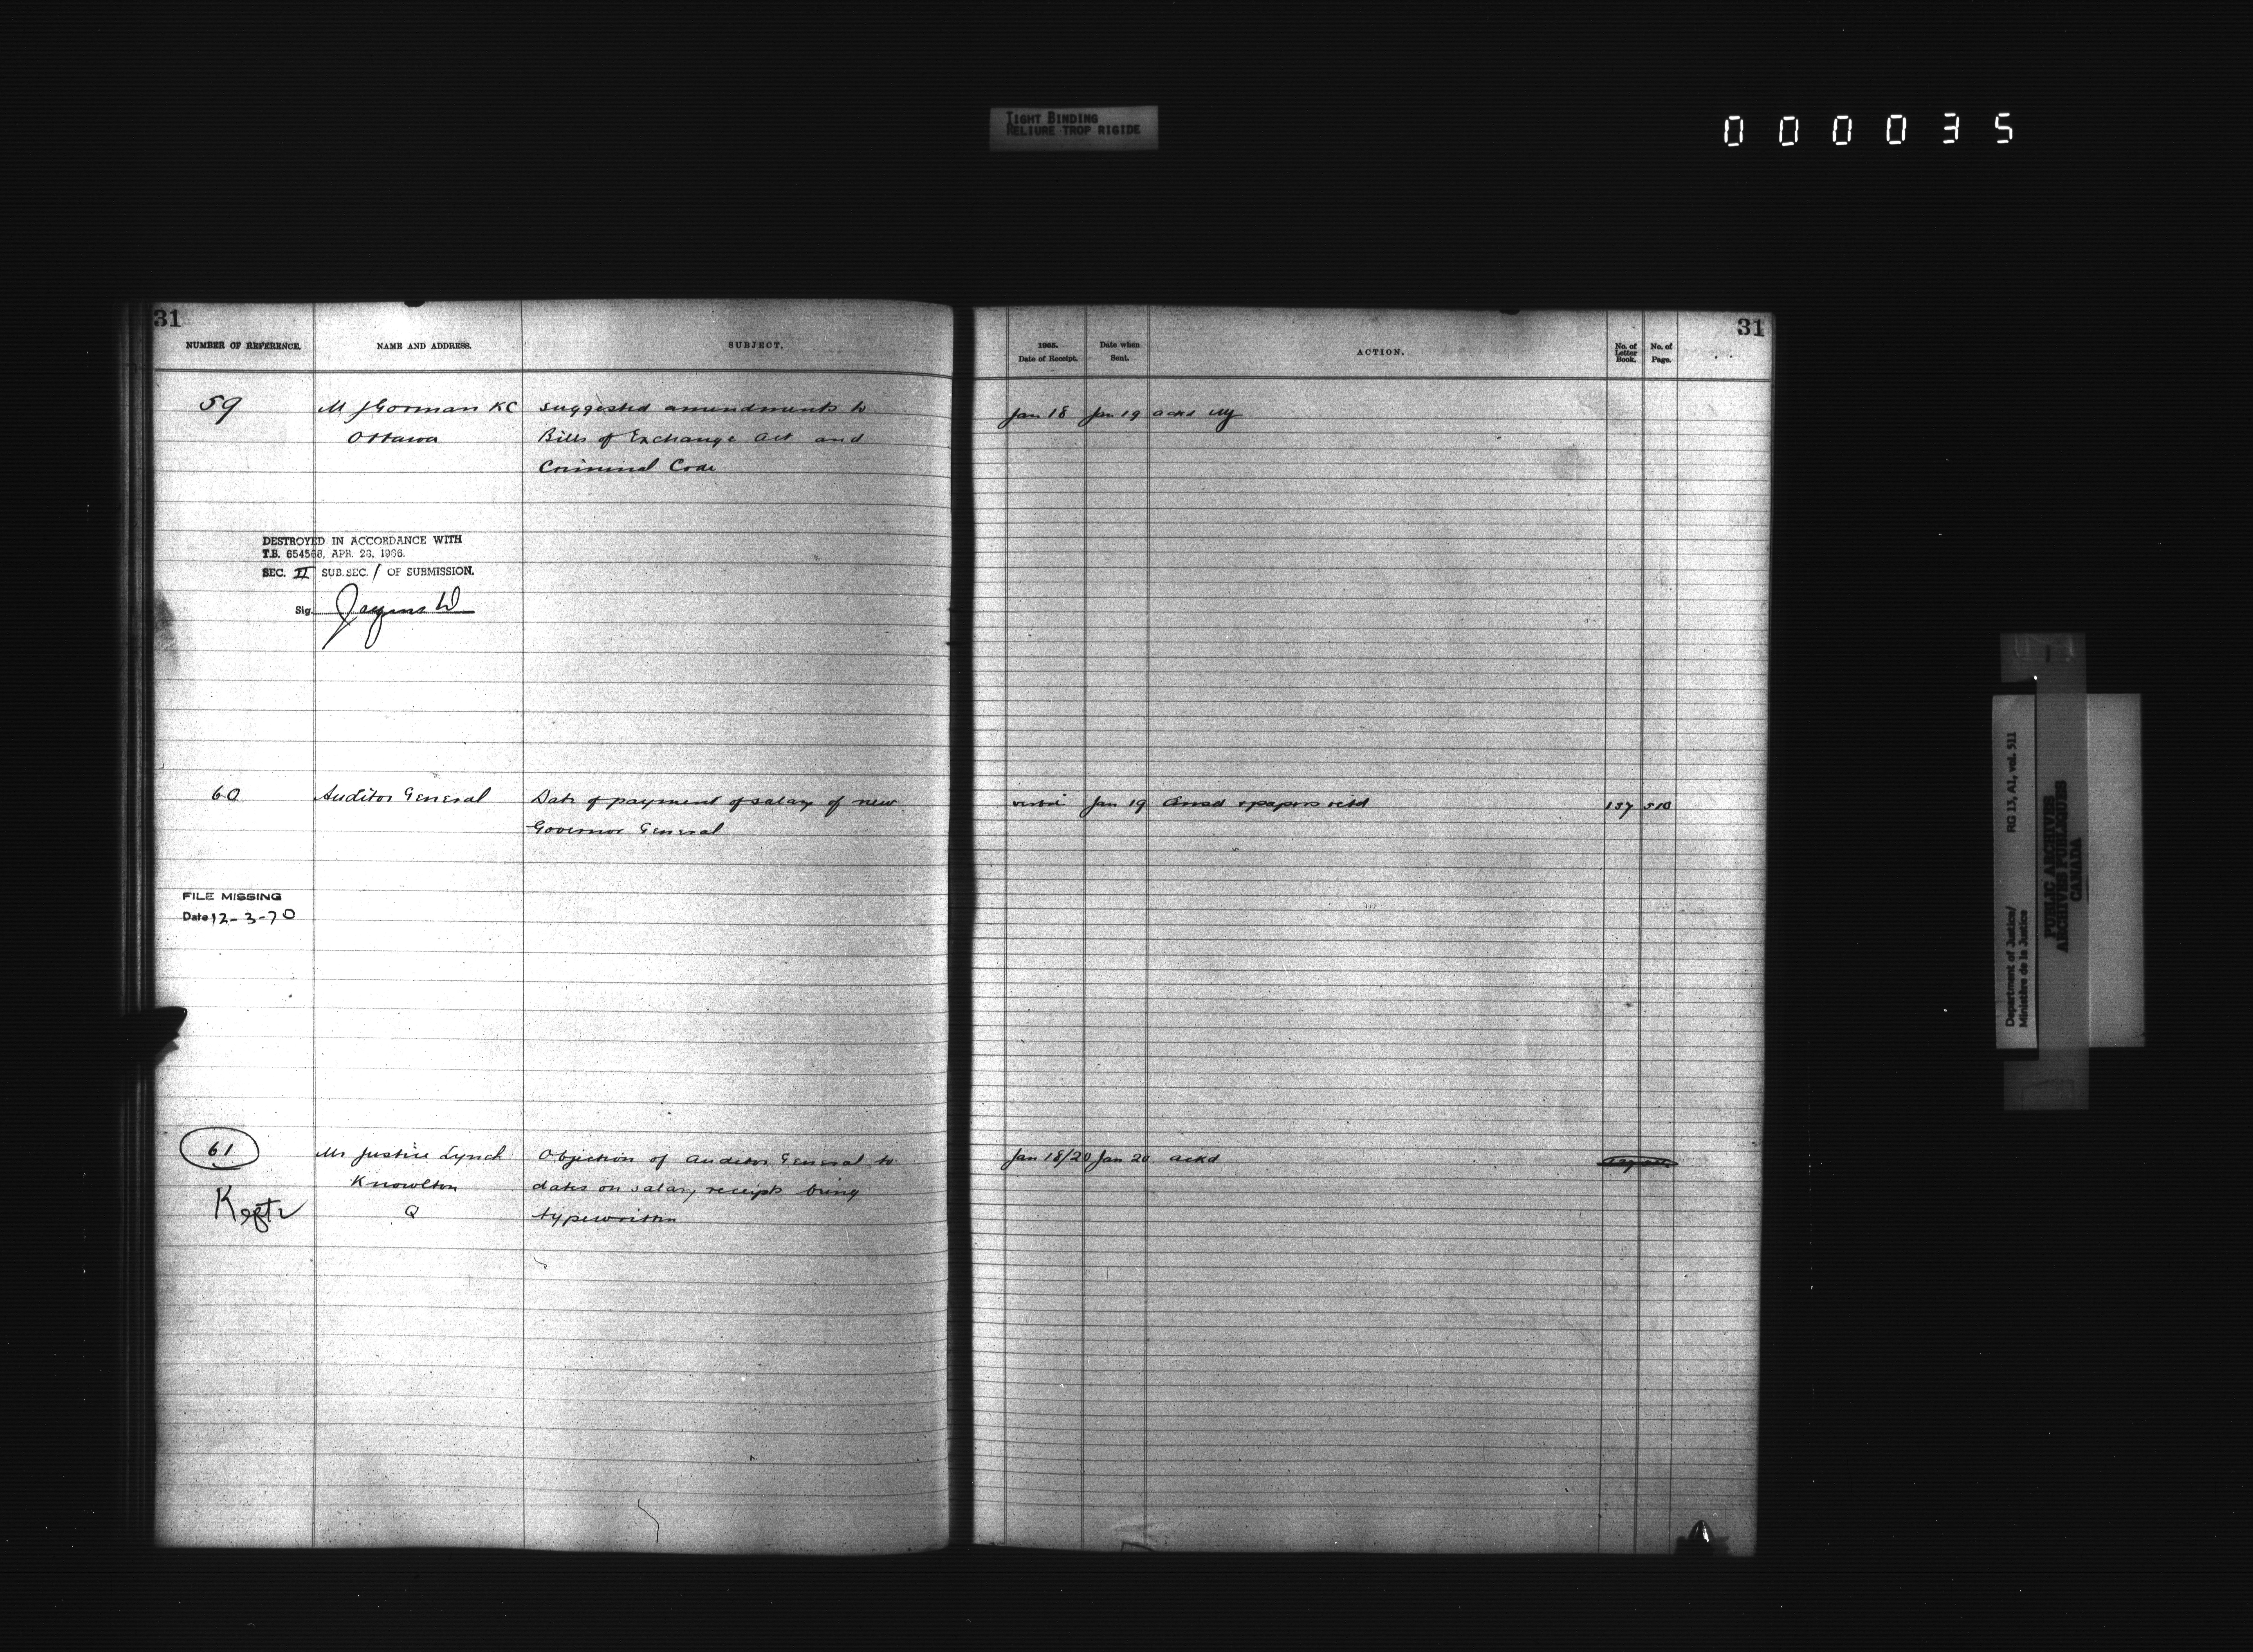 TIGHT BINDING
RELIURE TROP RIGIDE
000035
31
NUMBER OF REFERENCE.
NAME AND ADDRESS.
SUBJECT.
59
M J Gorman KC
Ottawa
Suggested amendments to
Bills of Exchange Act and
Criminal Code
DESTROYED IN ACCORDANCE WITH
T.B. 654566, APR. 26, 1966.
SEC. II SUB.SEC. / OF SUBMISSION.
Sig.
60
Auditor General
Date of payment of salary of new
Governor General
FILE MISSING
Date 12-3-70
61
Mr Justice Lynch
Knowlton
Q
Objection of Auditor General to
dates on salary receipts being
typewritten
31
1905.
Date of Receipt.
Date when
Sent.
ACTION.
No. of
Letter
Book.
No. of
Page.
Jan 18 Jan 19 ackd
Jan 19 Ansd & papers retd 137 510
Jan 18/20 Jan 20 ackd
Department of Justice/
Ministère de la Justice
RG 13, A1, vol. 511
PUBLIC ARCHIVES
ARCHIVES PUBLIQUES
CANADA